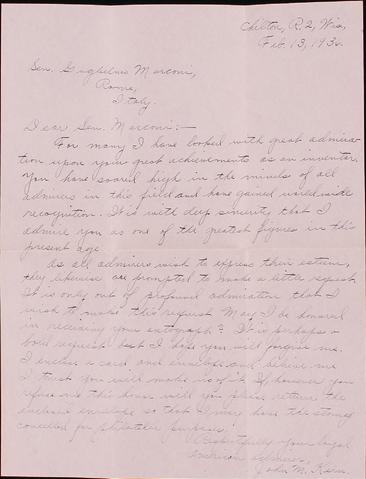 Chilton, R.2, Wis.
Feb. 13, 193
Sen. Guglielmo Marconi,
Rome,
Italy.
Dear Sen. Marconi:—
For many I have looked with great admira-
tion upon your great achievements as an inventor.
You have soared high in the minds of all
admirers in this field and have gained world wide
recognition. It is with deep sincerity that I
admire you as one of the greatest figures in this
present age.
As all admirers wish to express their esteem,
they likewise are prompted to make a little request.
It is only out of profound admiration that I
wish to make this request. May I be honored
in receiving your autograph? It is perhaps a
bold request but I hope you will forgive me.
I enclose a card and envelope and believe me
I trust you will make use of it. If, however you
refuse me this honor will you please return the
enclosed envelope so that I may have the stamp
cancelled for philatelic purposes.
Respectfully your loyal
American admirer,
John M.